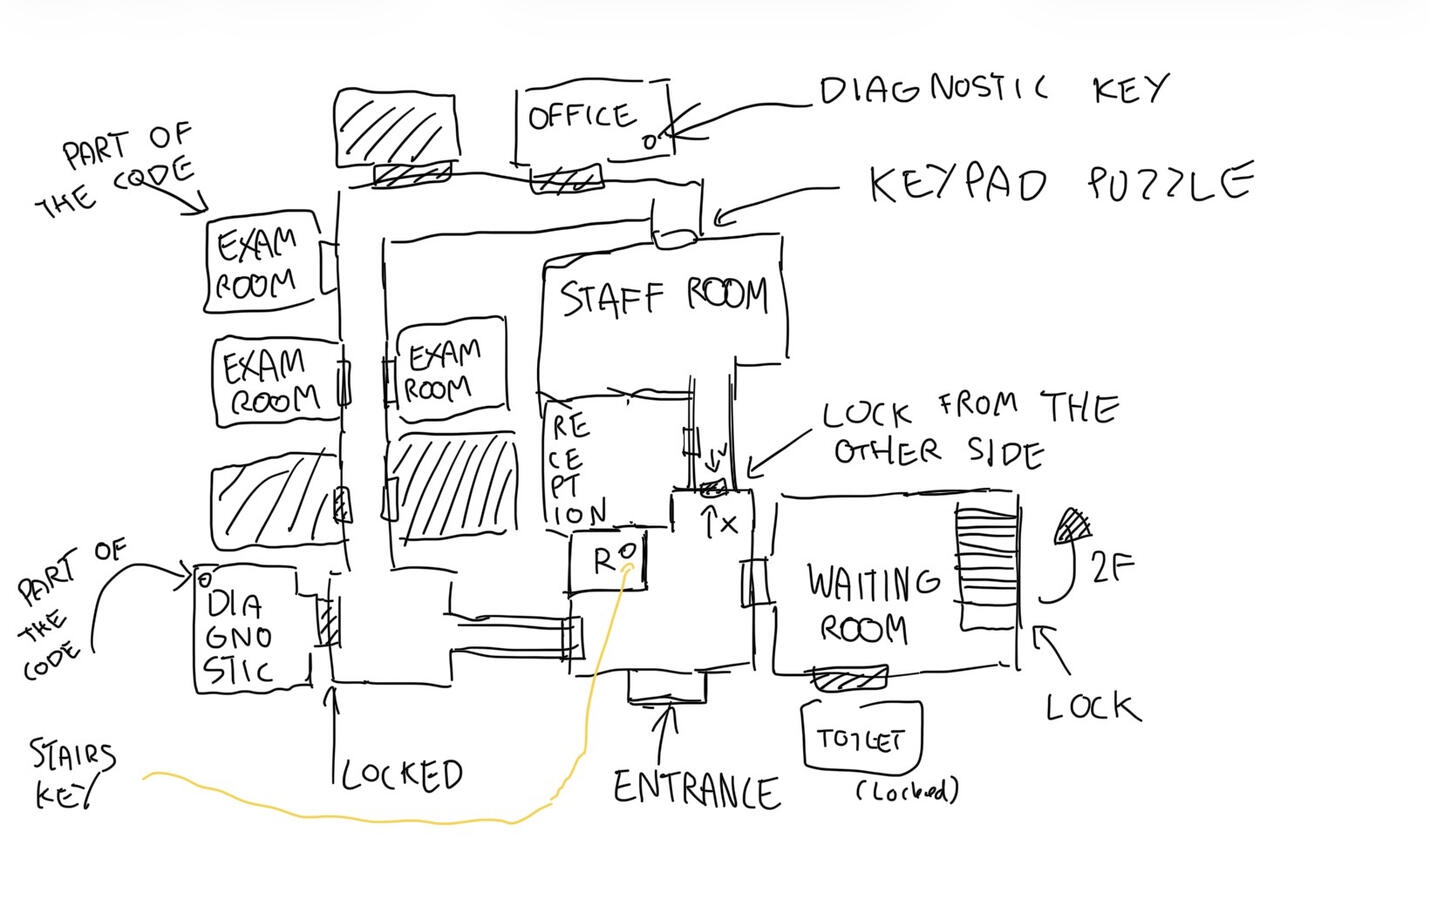 DIAGNOSTIC KEY
OFFICE
PART OF
THE CODE
KEYPAD PUZZLE
EXAM
ROOM
STAFF ROOM
EXAM
ROOM
EXAM
ROOM
LOCK FROM THE
OTHER SIDE
RE
CE
PT
ION
X
R
WAITING
ROOM
2F
PART OF
THE
CODE
DIA
GNO
STIC
LOCK
TOILET
(Locked)
STAIRS
KEY
LOCKED
ENTRANCE